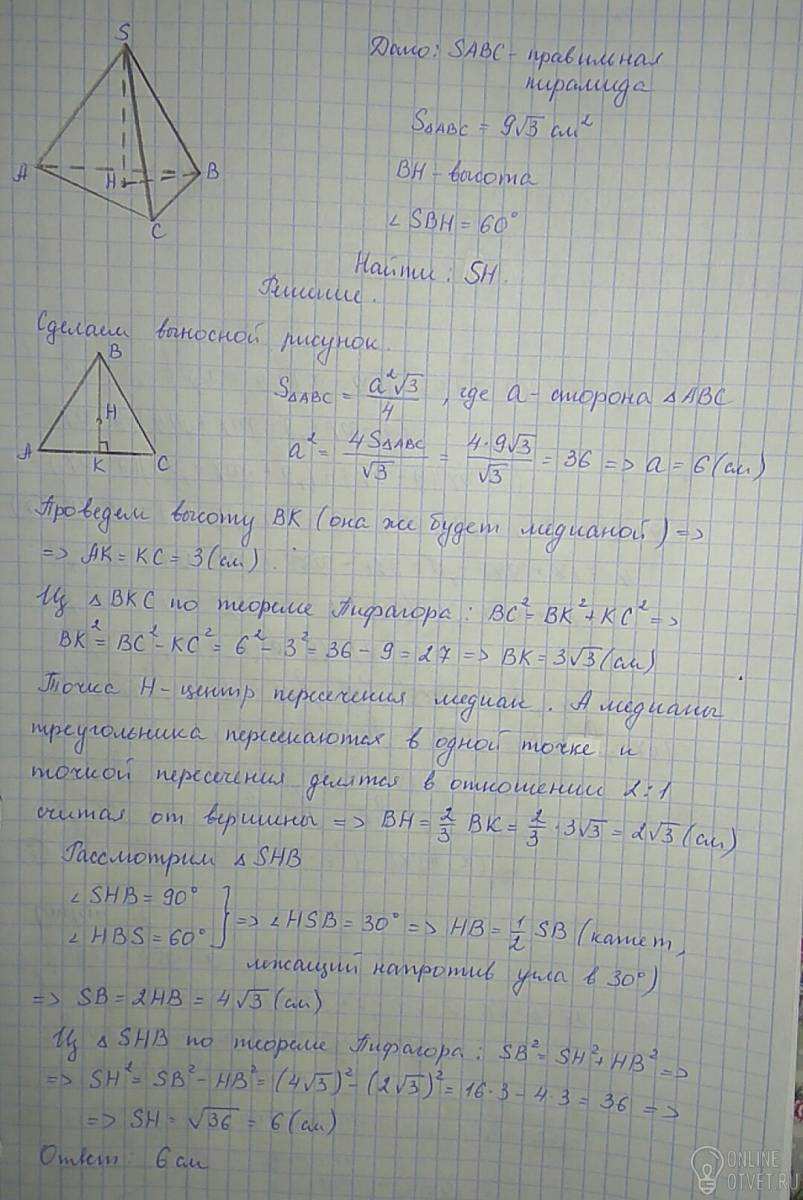 S
A
H
B
C
Дано: SABC - правильная
пирамида
S△ABC = 9√3 см²
BH - высота
∠SBH = 60°
Найти: SH.
Решение.
Сделаем выносной рисунок.
B
H
A
K
C
S△ABC = a²√3/4, где a - сторона △ABC
a² = 4S△ABC/√3 = 4·9√3/√3 = 36 => a = 6(см)
Проведем высоту BK (она же будет медианой) =>
=> AK = KC = 3(см).
Из △BKC по теореме Пифагора: BC² = BK² + KC² =>
BK² = BC² - KC² = 6² - 3² = 36 - 9 = 27 => BK = 3√3(см)
Точка H - центр пересечения медиан. А медианы
треугольника пересекаются в одной точке и
точкой пересечения делятся в отношении 2:1
считая от вершины => BH = 2/3 BK = 2/3 · 3√3 = 2√3(см)
Рассмотрим △SHB
∠SHB = 90°
∠HBS = 60° } => ∠HSB = 30° => HB = 1/2 SB (катет,
лежащий напротив угла в 30°)
=> SB = 2HB = 4√3(см)
Из △SHB по теореме Пифагора: SB² = SH² + HB² =>
=> SH² = SB² - HB² = (4√3)² - (2√3)² = 16·3 - 4·3 = 36 =>
=> SH = √36 = 6(см)
Ответ: 6 см
ONLINE
OTVET.RU